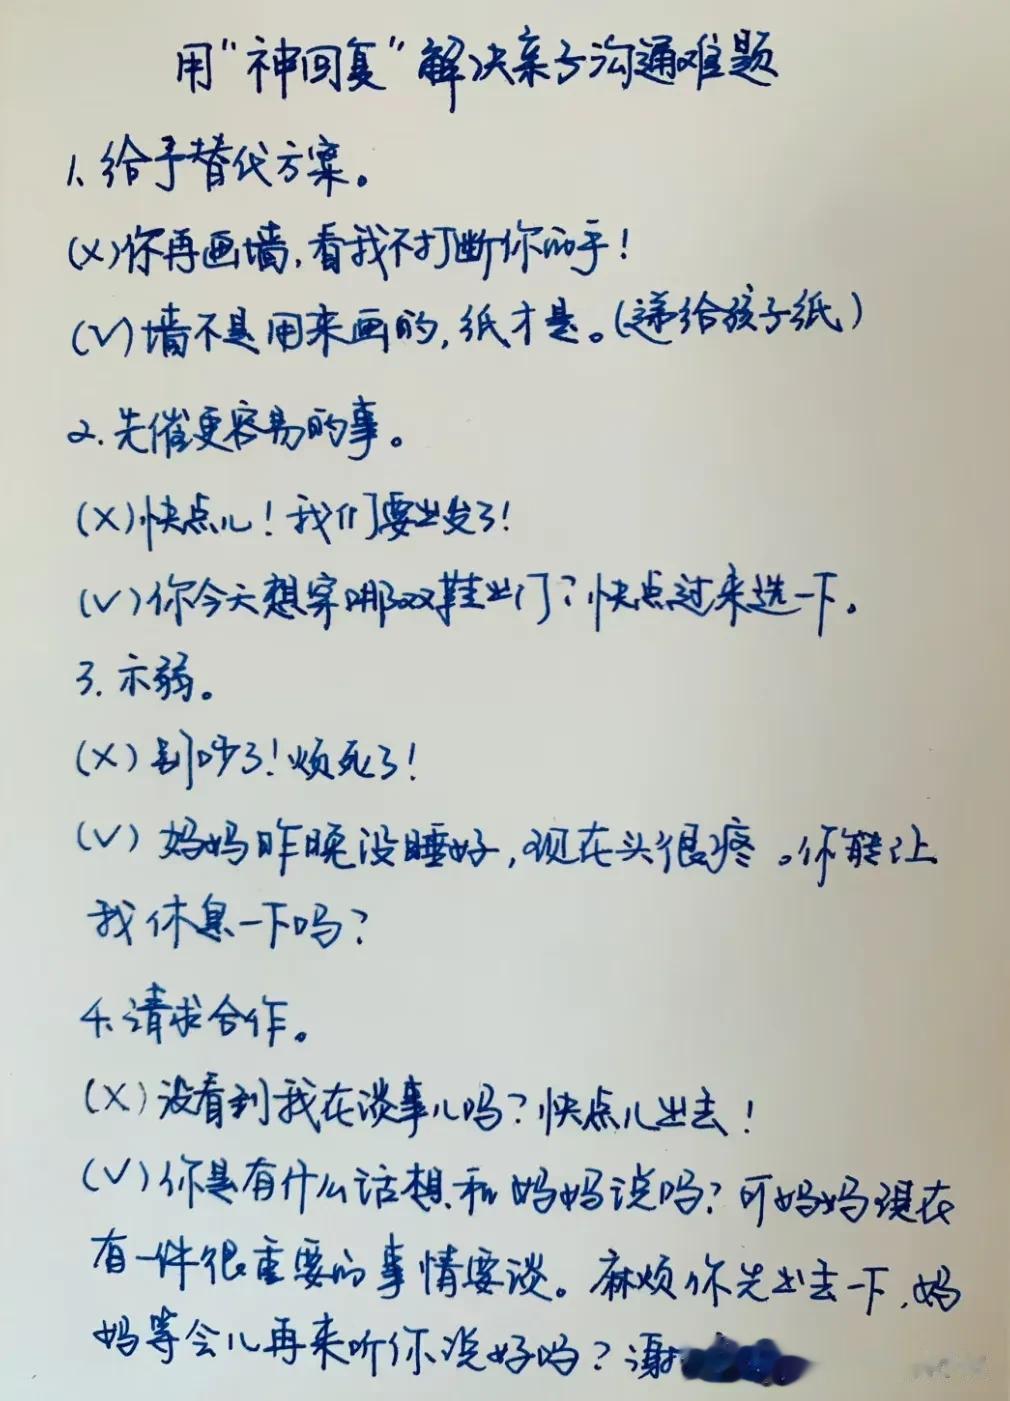 用“神回复”解决亲子沟通难题
1、给予替代方案。
(X)你再画墙,看我不打断你的手!
(V)墙不是用来画的,纸才是。(递给孩子纸)
2.先催更容易的事。
(X)快点儿!我们要出发了!
(V)你今天想穿哪双鞋出门?快点过来选一下。
3.示弱。
(X)别吵了!烦死了!
(V)妈妈昨晚没睡好,现在头很疼。你能让
我休息一下吗?
4.请求合作。
(X)没看到我在谈事儿吗?快点儿出去!
(V)你是有什么话想和妈妈说吗?可妈妈现在
有一件很重要的事情要谈。麻烦你先出去一下,妈
妈等会儿再来听你说好吗?谢